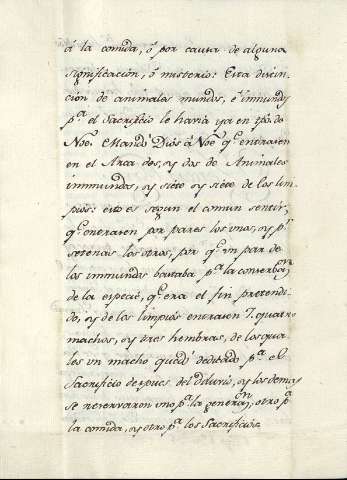 á la comida, ó por causa de alguna
significacion, ó misterio: Esta distin-
cion de animales mundos, é inmundos
pª. el Sacrificio se hacia ya en tpo. de
Noe. Mandó Dios á Noe qᵉ. entrasen
en el Arca dos, y dos de Animales
inmundos, y siete y siete de los lim-
pios: esto es segun el comun sentir,
qᵉ. entrasen por pares los unos, y pʳ.
setenas los otros, por qᵉ. un par de
los inmundos bastaba pª. la conserbaⁿ.
de la especie, qᵉ. era el fin pretendi-
do, y de los limpios entrasen 7. quatro
machos, y tres hembras, de los qua-
les un macho quedó dedicado pª. el
Sacrificio despues del diluvio, y los demas
se reservaron uno pª. la generaⁿ. otro pª.
la comida, y otro pª. los Sacrificios.